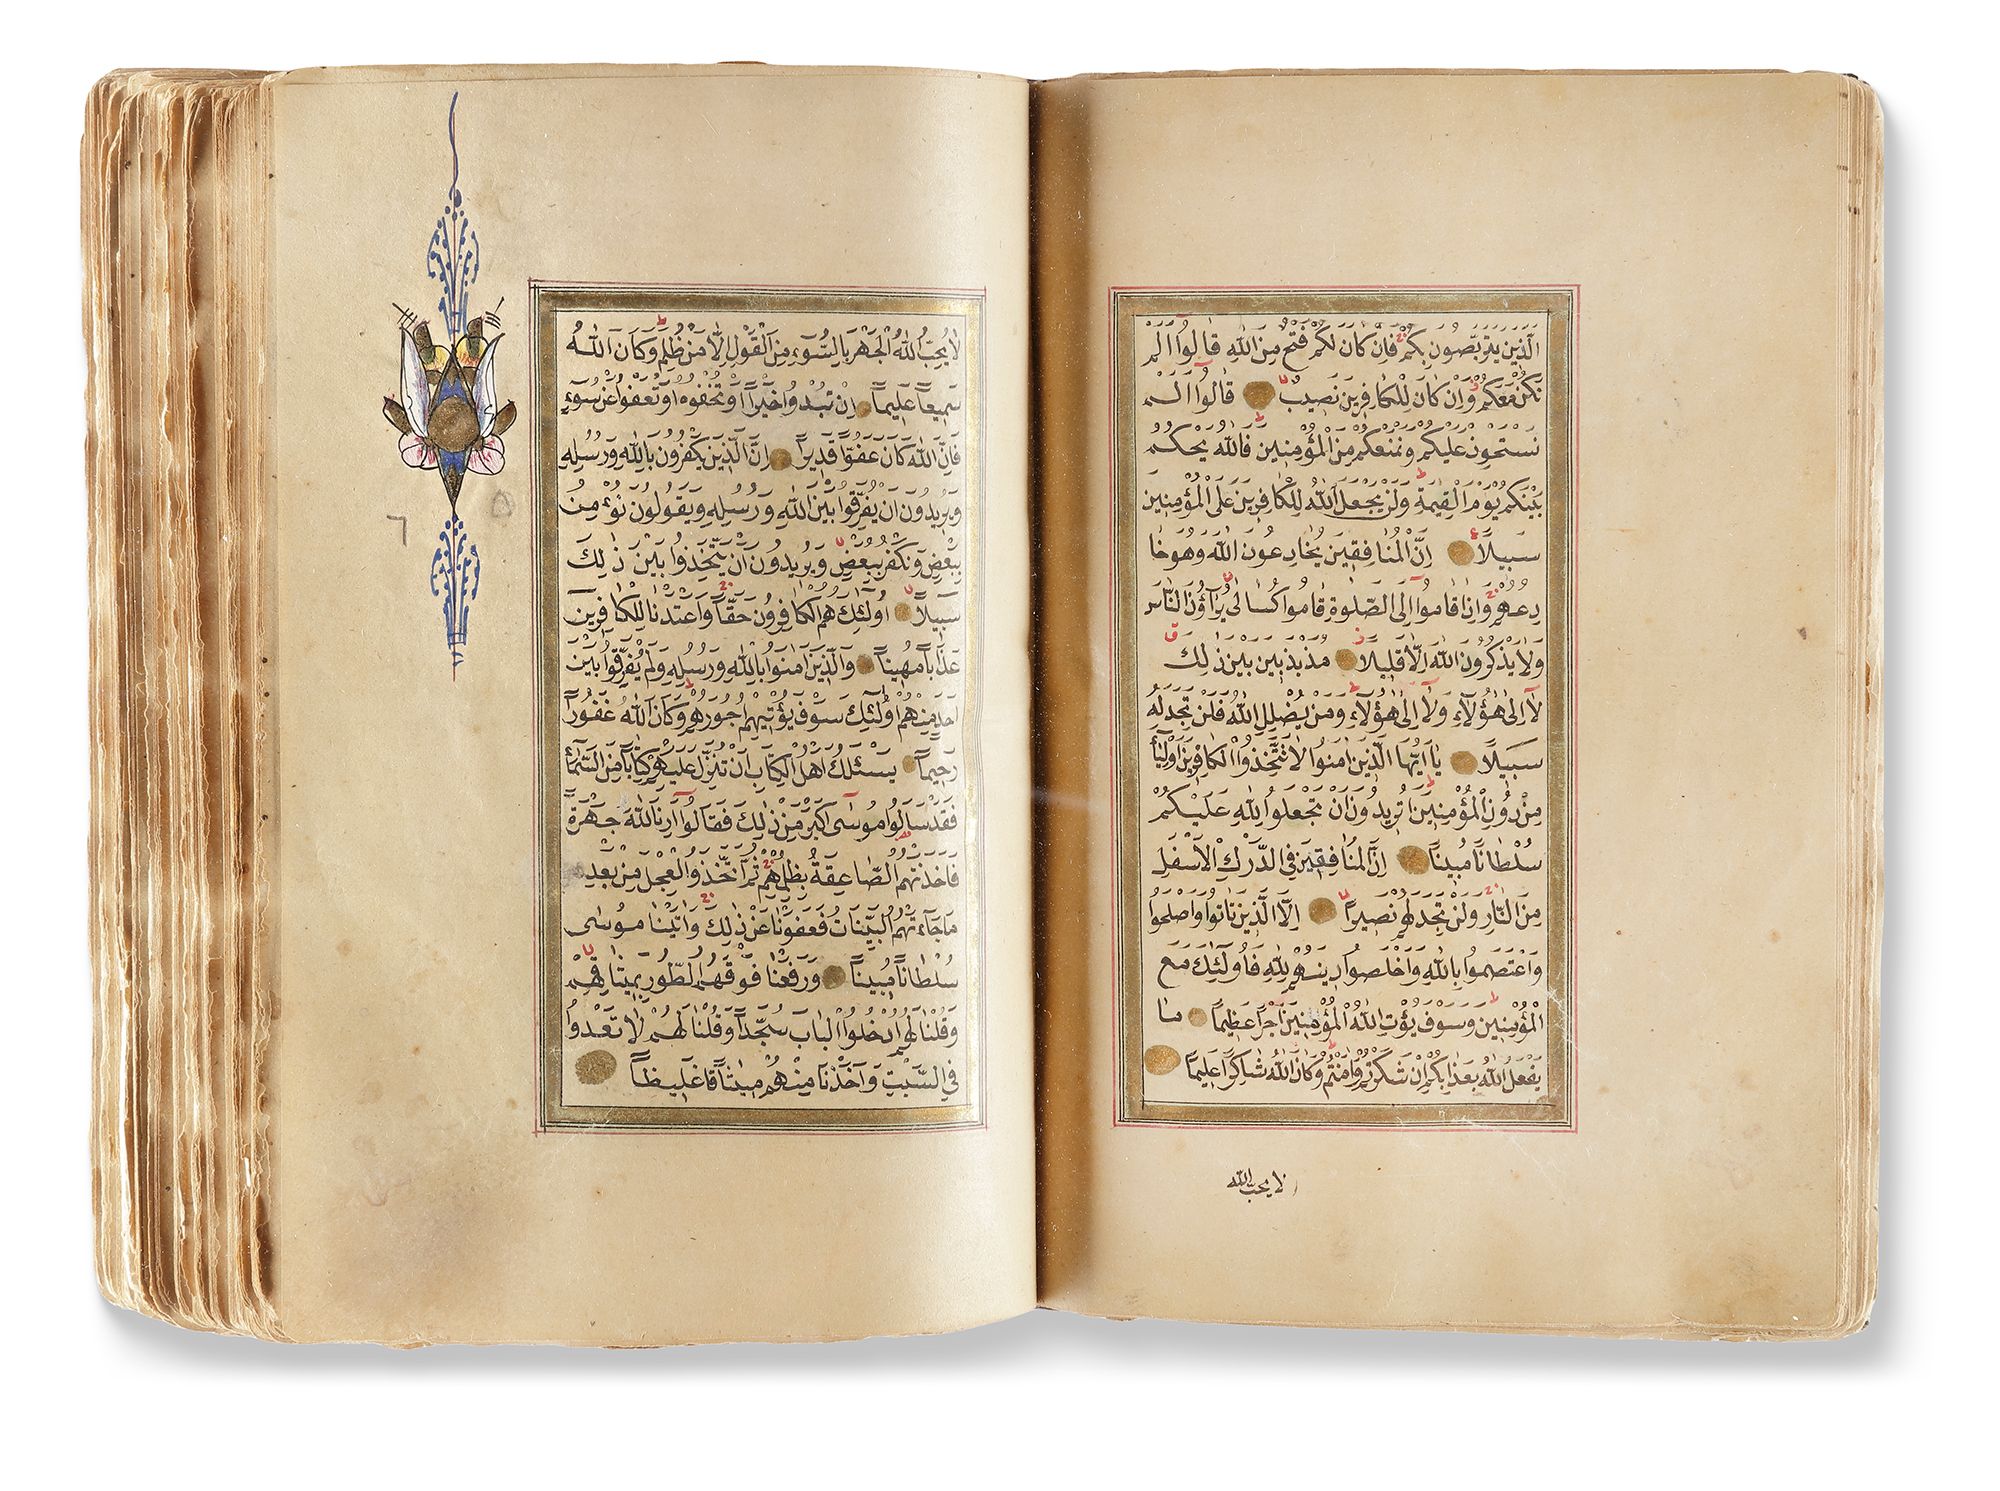 الَّذِينَ يَتَرَبَّصُونَ بِكُمْ فَاِنْ كَانَ لَكُمْ فَتْحٌ مِنَ اللّٰهِ قَالُٓوا اَلَمْ
نَكُنْ مَعَكُمْ وَاِنْ كَانَ لِلْكَافِرِينَ نَصِيبٌ قَالُٓوا اَلَمْ
نَسْتَحْوِذْ عَلَيْكُمْ وَنَمْنَعْكُمْ مِنَ الْمُؤْمِنِينَ فَاللّٰهُ يَحْكُمُ
بَيْنَكُمْ يَوْمَ الْقِيٰمَةِ وَلَنْ يَجْعَلَ اللّٰهُ لِلْكَافِرِينَ عَلَى الْمُؤْمِنِينَ
سَبِيلًا اِنَّ الْمُنَافِقِينَ يُخَادِعُونَ اللّٰهَ وَهُوَ خَا
دِعُهُمْ وَاِذَا قَامُٓوا اِلَى الصَّلٰوةِ قَامُوا كُسَالٰى يُرَآؤُنَ النَّاسَ
وَلَا يَذْكُرُونَ اللّٰهَ اِلَّا قَلِيلًا مُذَبْذَبِينَ بَيْنَ ذٰلِكَ
لَٓا اِلٰى هٰٓؤُلَٓاءِ وَلَٓا اِلٰى هٰٓؤُلَٓاءِ وَمَنْ يُضْلِلِ اللّٰهُ فَلَنْ تَجِدَ لَهُ
سَبِيلًا يَٓا اَيُّهَا الَّذِينَ اٰمَنُوا لَا تَتَّخِذُوا الْكَافِرِينَ اَوْلِيَٓاءَ
مِنْ دُونِ الْمُؤْمِنِينَ اَتُرِيدُونَ اَنْ تَجْعَلُوا لِلّٰهِ عَلَيْكُمْ
سُلْطَانًا مُبِينًا اِنَّ الْمُنَافِقِينَ فِي الدَّرْكِ الْاَسْفَلِ
مِنَ النَّارِ وَلَنْ تَجِدَ لَهُمْ نَصِيرًا اِلَّا الَّذِينَ تَابُوا وَاَصْلَحُوا
وَاعْتَصَمُوا بِاللّٰهِ وَاَخْلَصُوا دِينَهُمْ لِلّٰهِ فَاُولٰٓئِكَ مَعَ
الْمُؤْمِنِينَ وَسَوْفَ يُؤْتِ اللّٰهُ الْمُؤْمِنِينَ اَجْرًا عَظِيمًا مَا
يَفْعَلُ اللّٰهُ بِعَذَابِكُمْ اِنْ شَكَرْتُمْ وَاٰمَنْتُمْ وَكَانَ اللّٰهُ شَاكِرًا عَلِيمًا
لا يحب الله
لَا يُحِبُّ اللّٰهُ الْجَهْرَ بِالسُّٓوءِ مِنَ الْقَوْلِ اِلَّا مَنْ ظُلِمَ وَكَانَ اللّٰهُ
سَمِيعًا عَلِيمًا اِنْ تُبْدُوا خَيْرًا اَوْ تُخْفُوهُ اَوْ تَعْفُوا عَنْ سُٓوءٍ
فَاِنَّ اللّٰهَ كَانَ عَفُوًّا قَدِيرًا اِنَّ الَّذِينَ يَكْفُرُونَ بِاللّٰهِ وَرُسُلِهِ
وَيُرِيدُونَ اَنْ يُفَرِّقُوا بَيْنَ اللّٰهِ وَرُسُلِهِ وَيَقُولُونَ نُؤْمِنُ
بِبَعْضٍ وَنَكْفُرُ بِبَعْضٍ وَيُرِيدُونَ اَنْ يَتَّخِذُوا بَيْنَ ذٰلِكَ
سَبِيلًا اُولٰٓئِكَ هُمُ الْكَافِرُونَ حَقًّا وَاَعْتَدْنَا لِلْكَافِرِينَ
عَذَابًا مُهِينًا وَالَّذِينَ اٰمَنُوا بِاللّٰهِ وَرُسُلِهِ وَلَمْ يُفَرِّقُوا بَيْنَ
اَحَدٍ مِنْهُمْ اُولٰٓئِكَ سَوْفَ يُؤْتِيهِمْ اُجُورَهُمْ وَكَانَ اللّٰهُ غَفُورًا
رَحِيمًا يَسْئَلُكَ اَهْلُ الْكِتَابِ اَنْ تُنَزِّلَ عَلَيْهِمْ كِتَابًا مِنَ السَّمَٓاءِ
فَقَدْ سَاَلُوا مُوسٰٓى اَكْبَرَ مِنْ ذٰلِكَ فَقَالُٓوا اَرِنَا اللّٰهَ جَهْرَةً
فَاَخَذَتْهُمُ الصَّاعِقَةُ بِظُلْمِهِمْ ثُمَّ اتَّخَذُوا الْعِجْلَ مِنْ بَعْدِ
مَا جَٓاءَتْهُمُ الْبَيِّنَاتُ فَعَفَوْنَا عَنْ ذٰلِكَ وَاٰتَيْنَا مُوسٰى
سُلْطَانًا مُبِينًا وَرَفَعْنَا فَوْقَهُمُ الطُّورَ بِمِيثَاقِهِمْ
وَقُلْنَا لَهُمُ ادْخُلُوا الْبَابَ سُجَّدًا وَقُلْنَا لَهُمْ لَا تَعْدُوا
فِي السَّبْتِ وَاَخَذْنَا مِنْهُمْ مِيثَاقًا غَلِيظًا